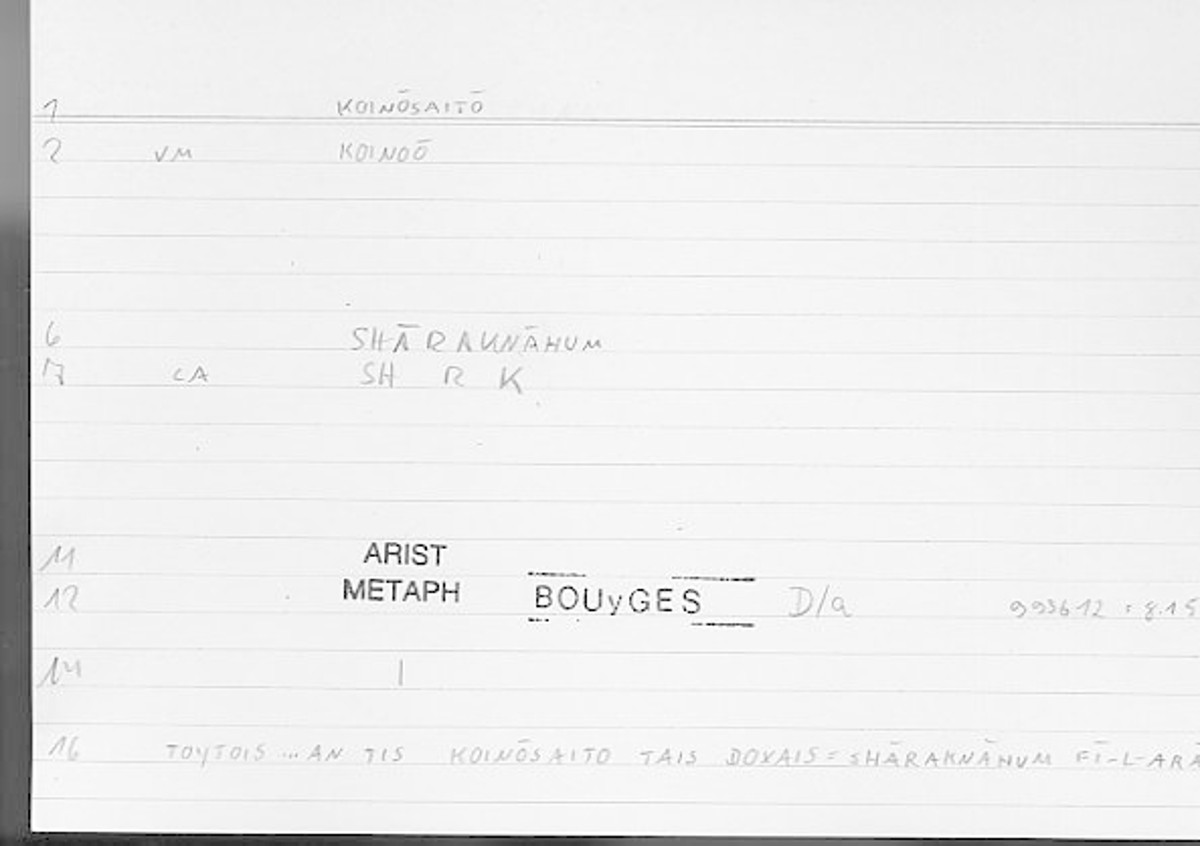 1 KOINŌSAITŌ
2 VM KOINOŌ
6 SHĀRAKNĀHUM
7 CA SH R K
11 ARIST
12 METAPH BOUyGES D/a 993612 : 8.15
14 |
16 TOYTOIS ... AN TIS KOINŌSAITO TAIS DOXAIS = SHĀRAKNĀHUM FĪ-L-ARA